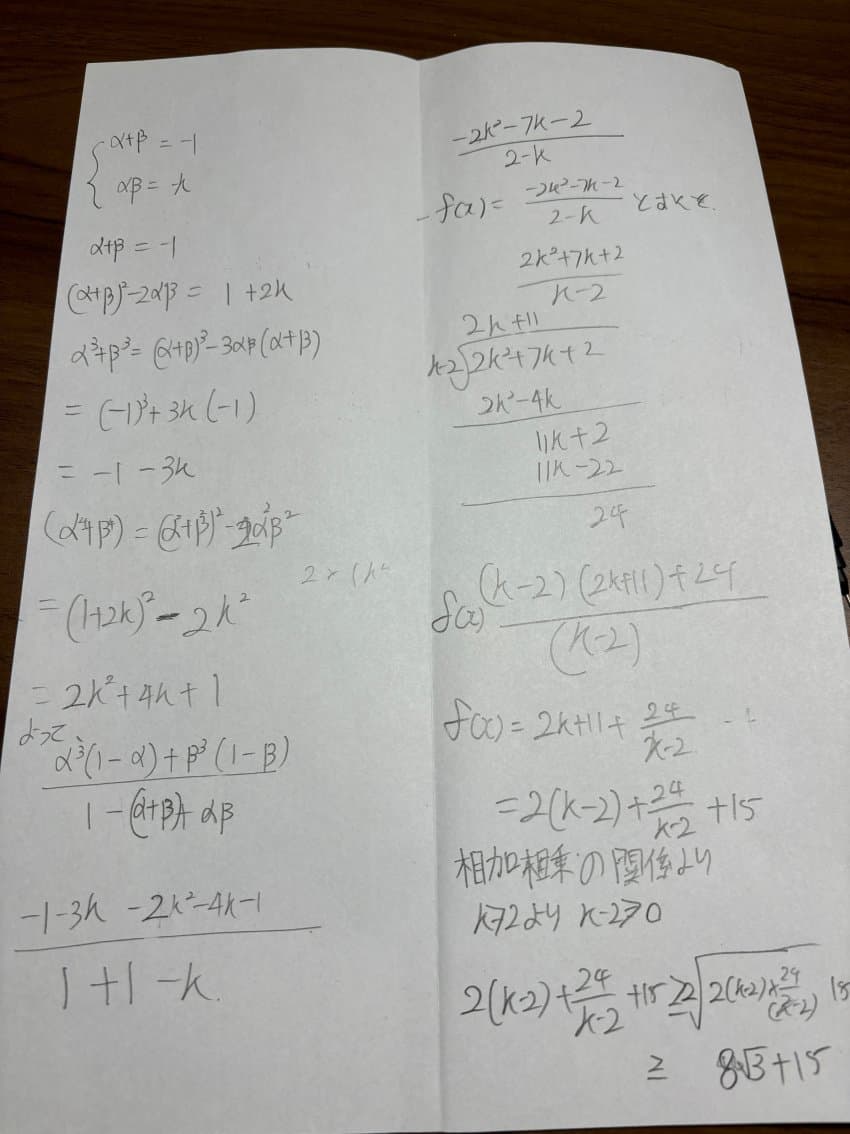 α+β = -1
αβ = -k
α+β = -1
(α+β)²-2αβ = 1+2k
α³+β³ = (α+β)³-3αβ(α+β)
= (-1)³+3k(-1)
= -1-3k
(α⁴+β⁴) = (α²+β²)²-2α²β²
2×(k²
= (1+2k)²-2k²
= 2k²+4k+1
よって、
α³(1-α)+β³(1-β)
1-(α+β)+αβ
-1-3k -2k²-4k-1
1+1-k.
-2k²-7k-2
2-k
f(x) = \frac{-2k²-7k-2}{2-k} とおくと.
2k²+7k+2
k-2
2k+11
k-2)2k²+7k+2
2k²-4k
11k+2
11k-22
24
f(x) \frac{(k-2)(2k+11)+24}{(k-2)}
f(x) = 2k+11+\frac{24}{k-2}
= 2(k-2)+\frac{24}{k-2}+15
相加相乗の関係より
k≧2より k-2≧0
2(k-2)+\frac{24}{k-2}+15≧2\sqrt{2(k-2)×\frac{24}{(k-2)}} 15
≧ 8√3+15